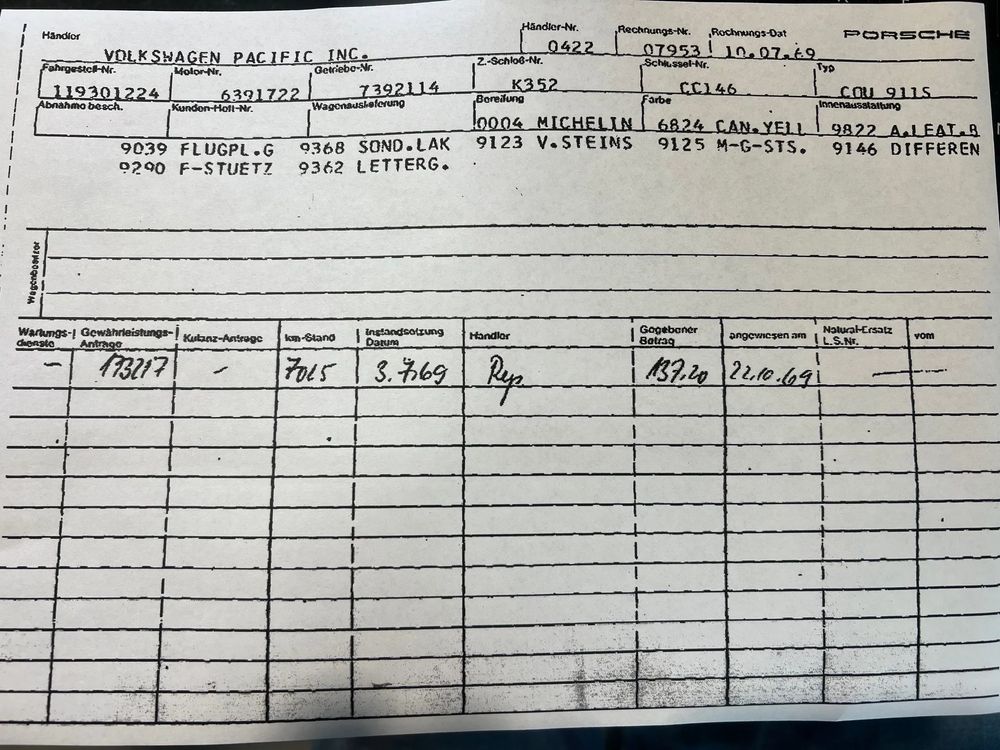 Händler Händler-Nr. Rechnungs-Nr. Rechnungs-Dat PORSCHE
VOLKSWAGEN PACIFIC INC. 0422 07953 10.07.69
Fahrgestell-Nr. Motor-Nr. Getriebe-Nr. Z.-Schloß-Nr. Schlüssel-Nr. Typ
119301224 6391722 7392114 K352 CC146 COU 911S
Abnahme besch. Kunden-Heft-Nr. Wagenauslieferung Bereifung Farbe Innenausstattung
0004 MICHELIN 6824 CAN.YELL 9822 A.LEAT.B
9039 FLUGPL.G 9368 SOND.LAK 9123 V.STEINS 9125 M-G-STS. 9146 DIFFEREN
9290 F-STUETZ 9362 LETTERG.
Wagenbesitzer
Wartungs-dienste Gewährleistungs-Anträge Kulanz-Anträge km-Stand Instandsetzung Datum Händler Gegebener Betrag angewiesen am Natural-Ersatz L.S.Nr. vom
– 173217 – 7015 3.7.69 Rep. 137.20 22.10.69 —